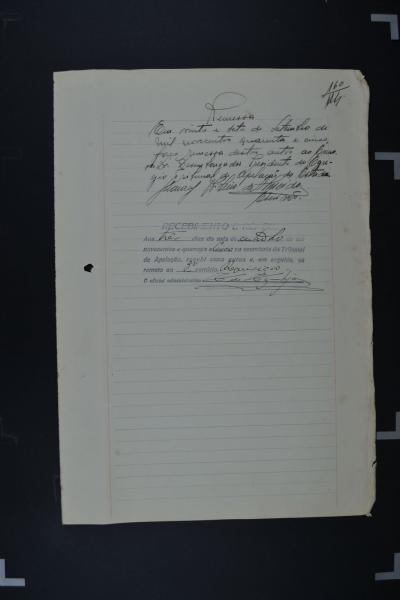 160
Remessa
Em vinte e sete de Setembro de
mil novecentos quarenta e cinco
faço remessa destes autos ao Exmo.
Sr. Desembargador Presidente do Egre-
gio Tribunal de Apelação do Estado.
RECEBIMENTO E RE
Aos tres dias do mês de outubro de mil
novecentos e quarenta e cinco na secretaria do Tribunal
de Apelação, recebi estes autos e, em seguida, os
remeto ao 3º cartório
O oficial administrativo